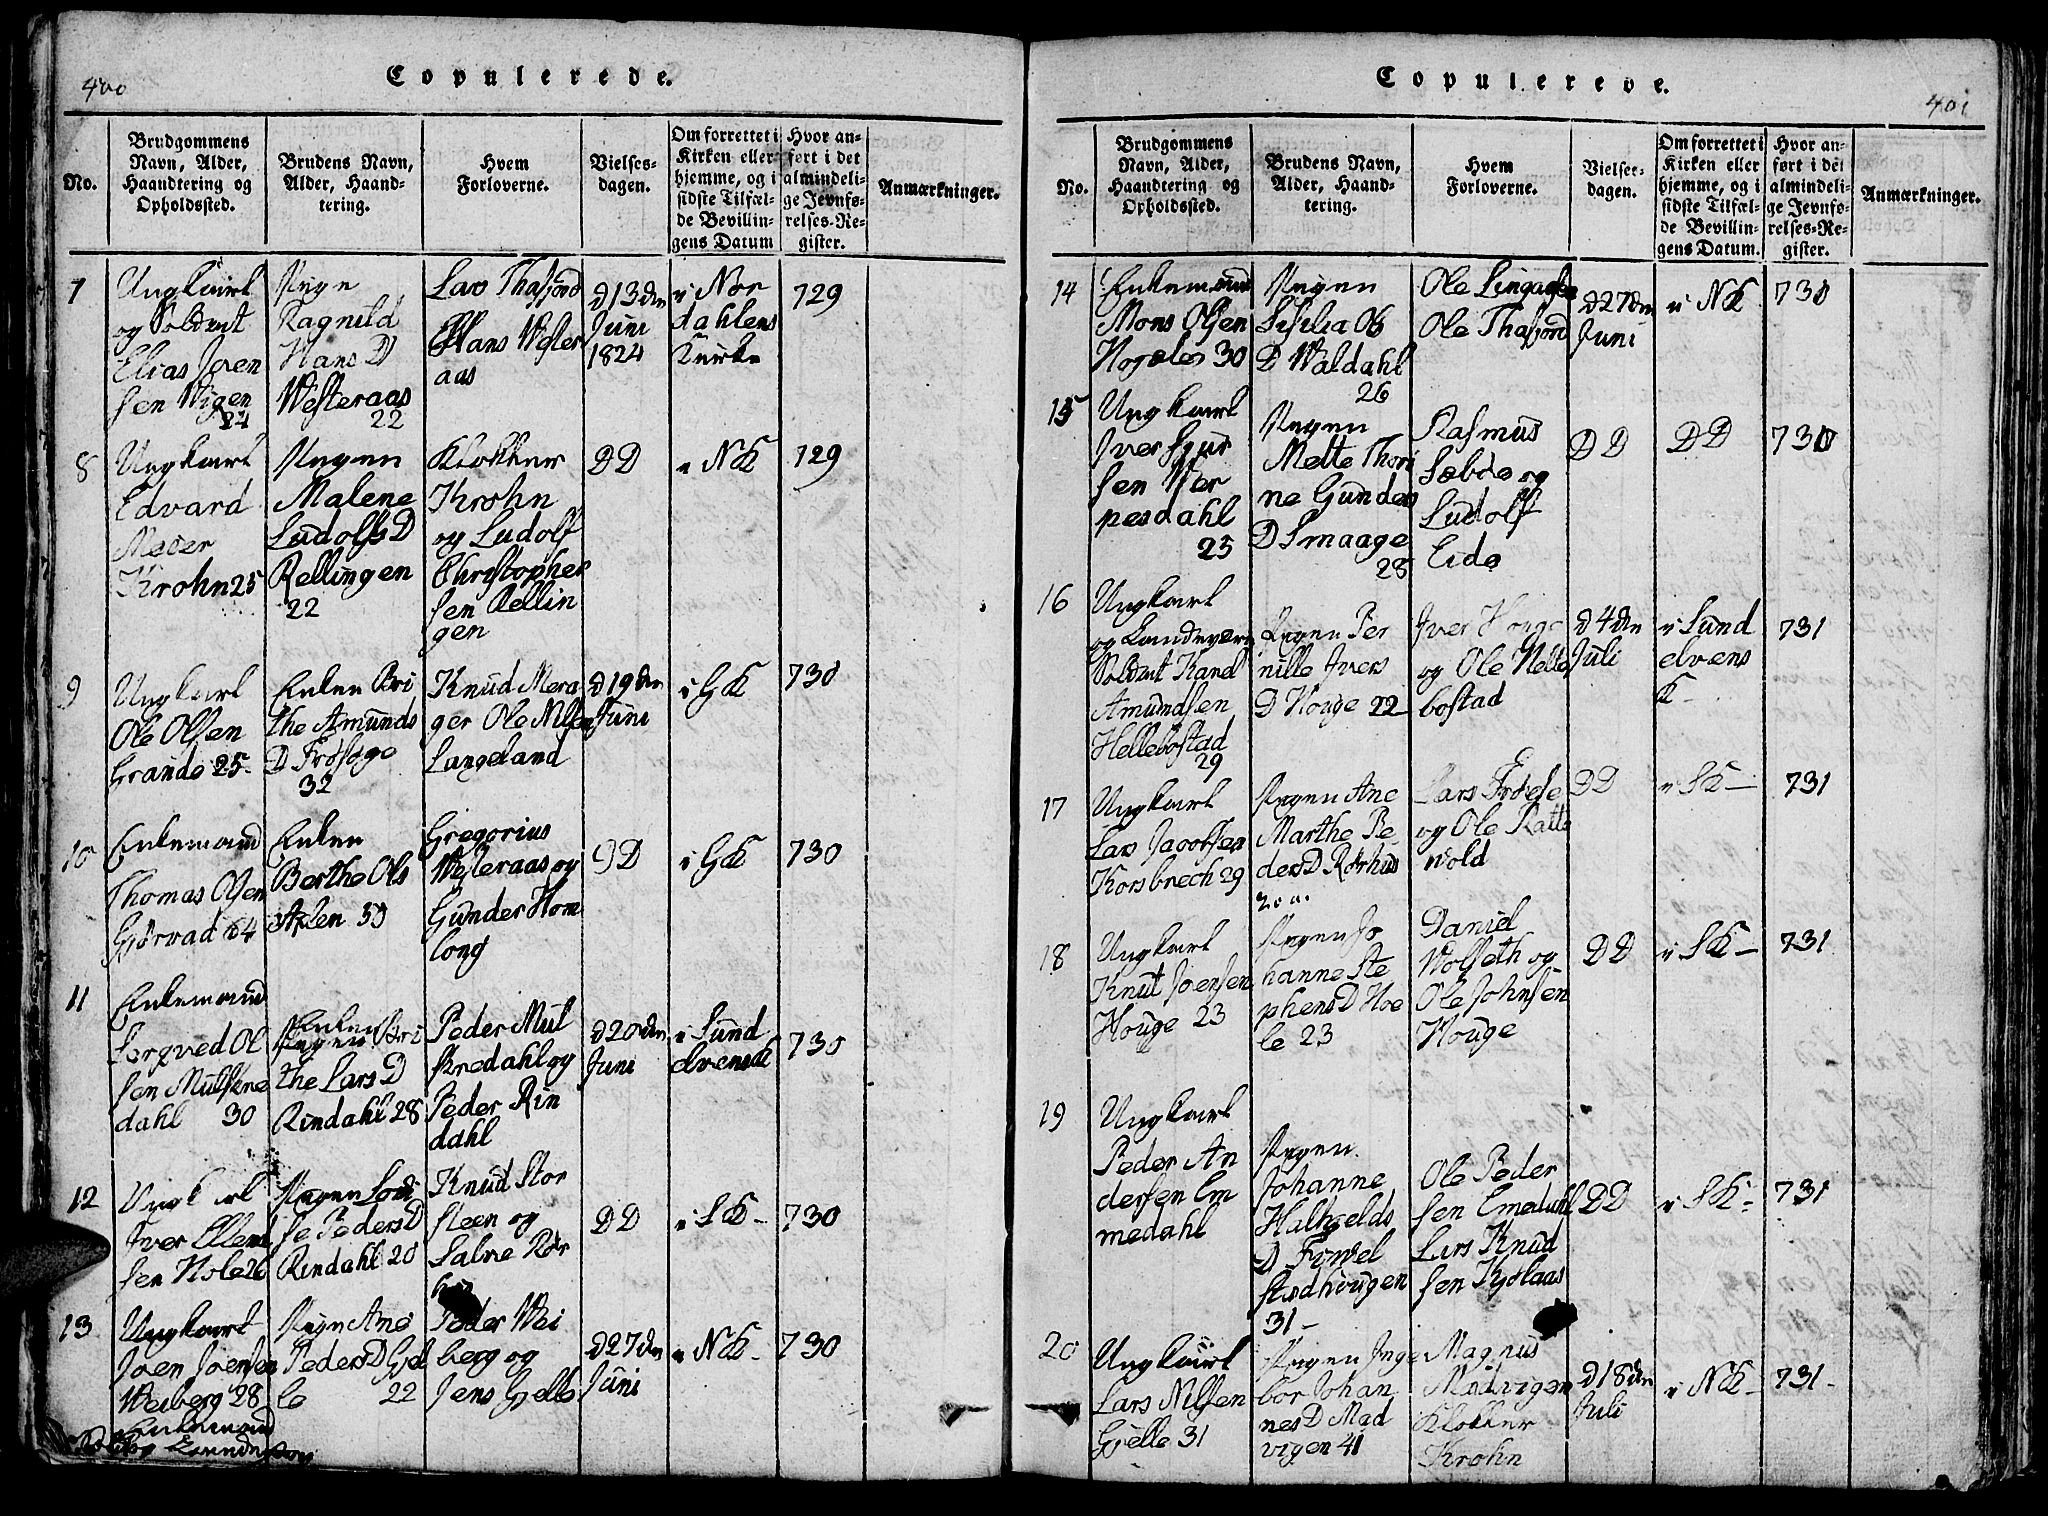 400
Copulerede.
No.
Brudgommens
Navn, Alder,
Haandtering og
Opholdssted.
Brudens Navn,
Alder, Haand-
tering.
Hvem
Forloverne.
Vielses-
dagen.
Om forrettet i
Kirken eller
hjemme, og i
sidste Tilfæl-
de Bevillin-
gens Datum
Hvor an-
ført i det
almindeli-
ge Jevnfø-
relses-Re-
gister.
Anmærkninger.
7
Ungkarl
og Soldat
Elias Joen
sen Wigen
24
Pige
Ragnild
Hans D
Westeraas
22
Lars Thafjord
Hans Wester
aas
D 13den
Juni
1824
i Nor
dahlens
Kirke
729
8
Ungkarl
Edvard
Meder
Krohn 25
Pigen
Malene
Ludolfs D
Rellingen
22
Klokker
Krohn
og Ludolf
Christopher
sen Rellin
gen
D D
i NK
729
9
Ungkarl
Ole Olsen
Grande 25
Enken Bri
the Amunds
D Frøsage
32
Knud Mera
ger Ole Nilsen
Langeland
D 19den
Juni
i GK
730
10
Enkemand
Thomas Olsen
Gjørvad 64
Enken
Berthe Ols
50
Gregorius
Westeraas og
Gunder Hom
long
D D
i GK
730
11
Enkemand
Ol
sen Mulskre
dahl 30
Enken
Pigen Bri
the Lars D
Rindahl 28
Peder Mul
skredahl og
Peder Rin
dahl
D 20den
Juni
i Sund
elvens K
730
12
Ungkarl
Iver Ellend
sen Hole 26
Pigen Lovi
se Peders D
Rindahl 20
Knud Stor
steen og
Salve Rør
hus
D D
i SK -
730
13
Ungkarl
Joen Joensen
Weiberg 28
Pigen Ane
Peders D Gjel
le 22
Peder Wei
berg og
Jens Gjelle
D 27den
Juni
i NK -
730
Enkemand
401
Copulerede.
No.
Brudgommens
Navn, Alder,
Haandtering og
Opholdssted.
Brudens Navn,
Alder, Haand-
tering.
Hvem
Forloverne.
Vielses-
dagen.
Om forrettet i
Kirken eller
hjemme, og i
sidste Tilfæl-
de Bevillin-
gens Datum.
Hvor an-
ført i det
almindeli-
ge Jevnfø-
relses-Re-
gister.
Anmærkninger.
14
Enkemand
Mons Olsen
30
Pigen
Sisilia Ols
D Waldahl
26
Ole Lingaasen
Ole Thafjord
D 27den
Juni
i NK
730
15
Ungkarl
Iver Sjur
sen Wer
pesdahl
25
Pigen
Mette Thori
ne Gunders
D Smaage
28
Rasmus
Sæbde og
Ludolf
Eide
D D
D D
730
16
Ungkarl
og Landeværn
Soldat Karel
Amundsen
Hellebostad
29
Pigen Per
nille Ivers
D Houge 22
Iver Houge
og Ole Helle
bostad
D 4den
Juli
i Sund
elvens
K -
731
17
Ungkarl
Lars Jacobsen
Korsbrech 29
Pigen Ane
Marthe Pe
ders D Rørhus
20 a.
Lars Frøese
og Ole Ratte
vold
D D
i SK -
731
18
Ungkarl
Knut Joensen
Houge 23
Pigen Jo
hanne Ste
phens D Hoe
le 23
Daniel
Wolseth og
Ole Johnsen
Houge
D D
i SK -
731
19
Ungkarl
Peder An
dersen Em
medahl
Pigen
Johanne
Halkjelds
D
stadhougen
31 -
Ole Peder
sen Emedahl
Lars Knud
sen Kjølaas
D D
i SK -
731
20
Ungkarl
Lars Nilsen
Gjelle 31
Pigen Inge
bor Johan
nes D Mad
vigen 41
Magnus
Madvigen
Klokker
Krohn
D 18den
Juli
i NK -
731 -